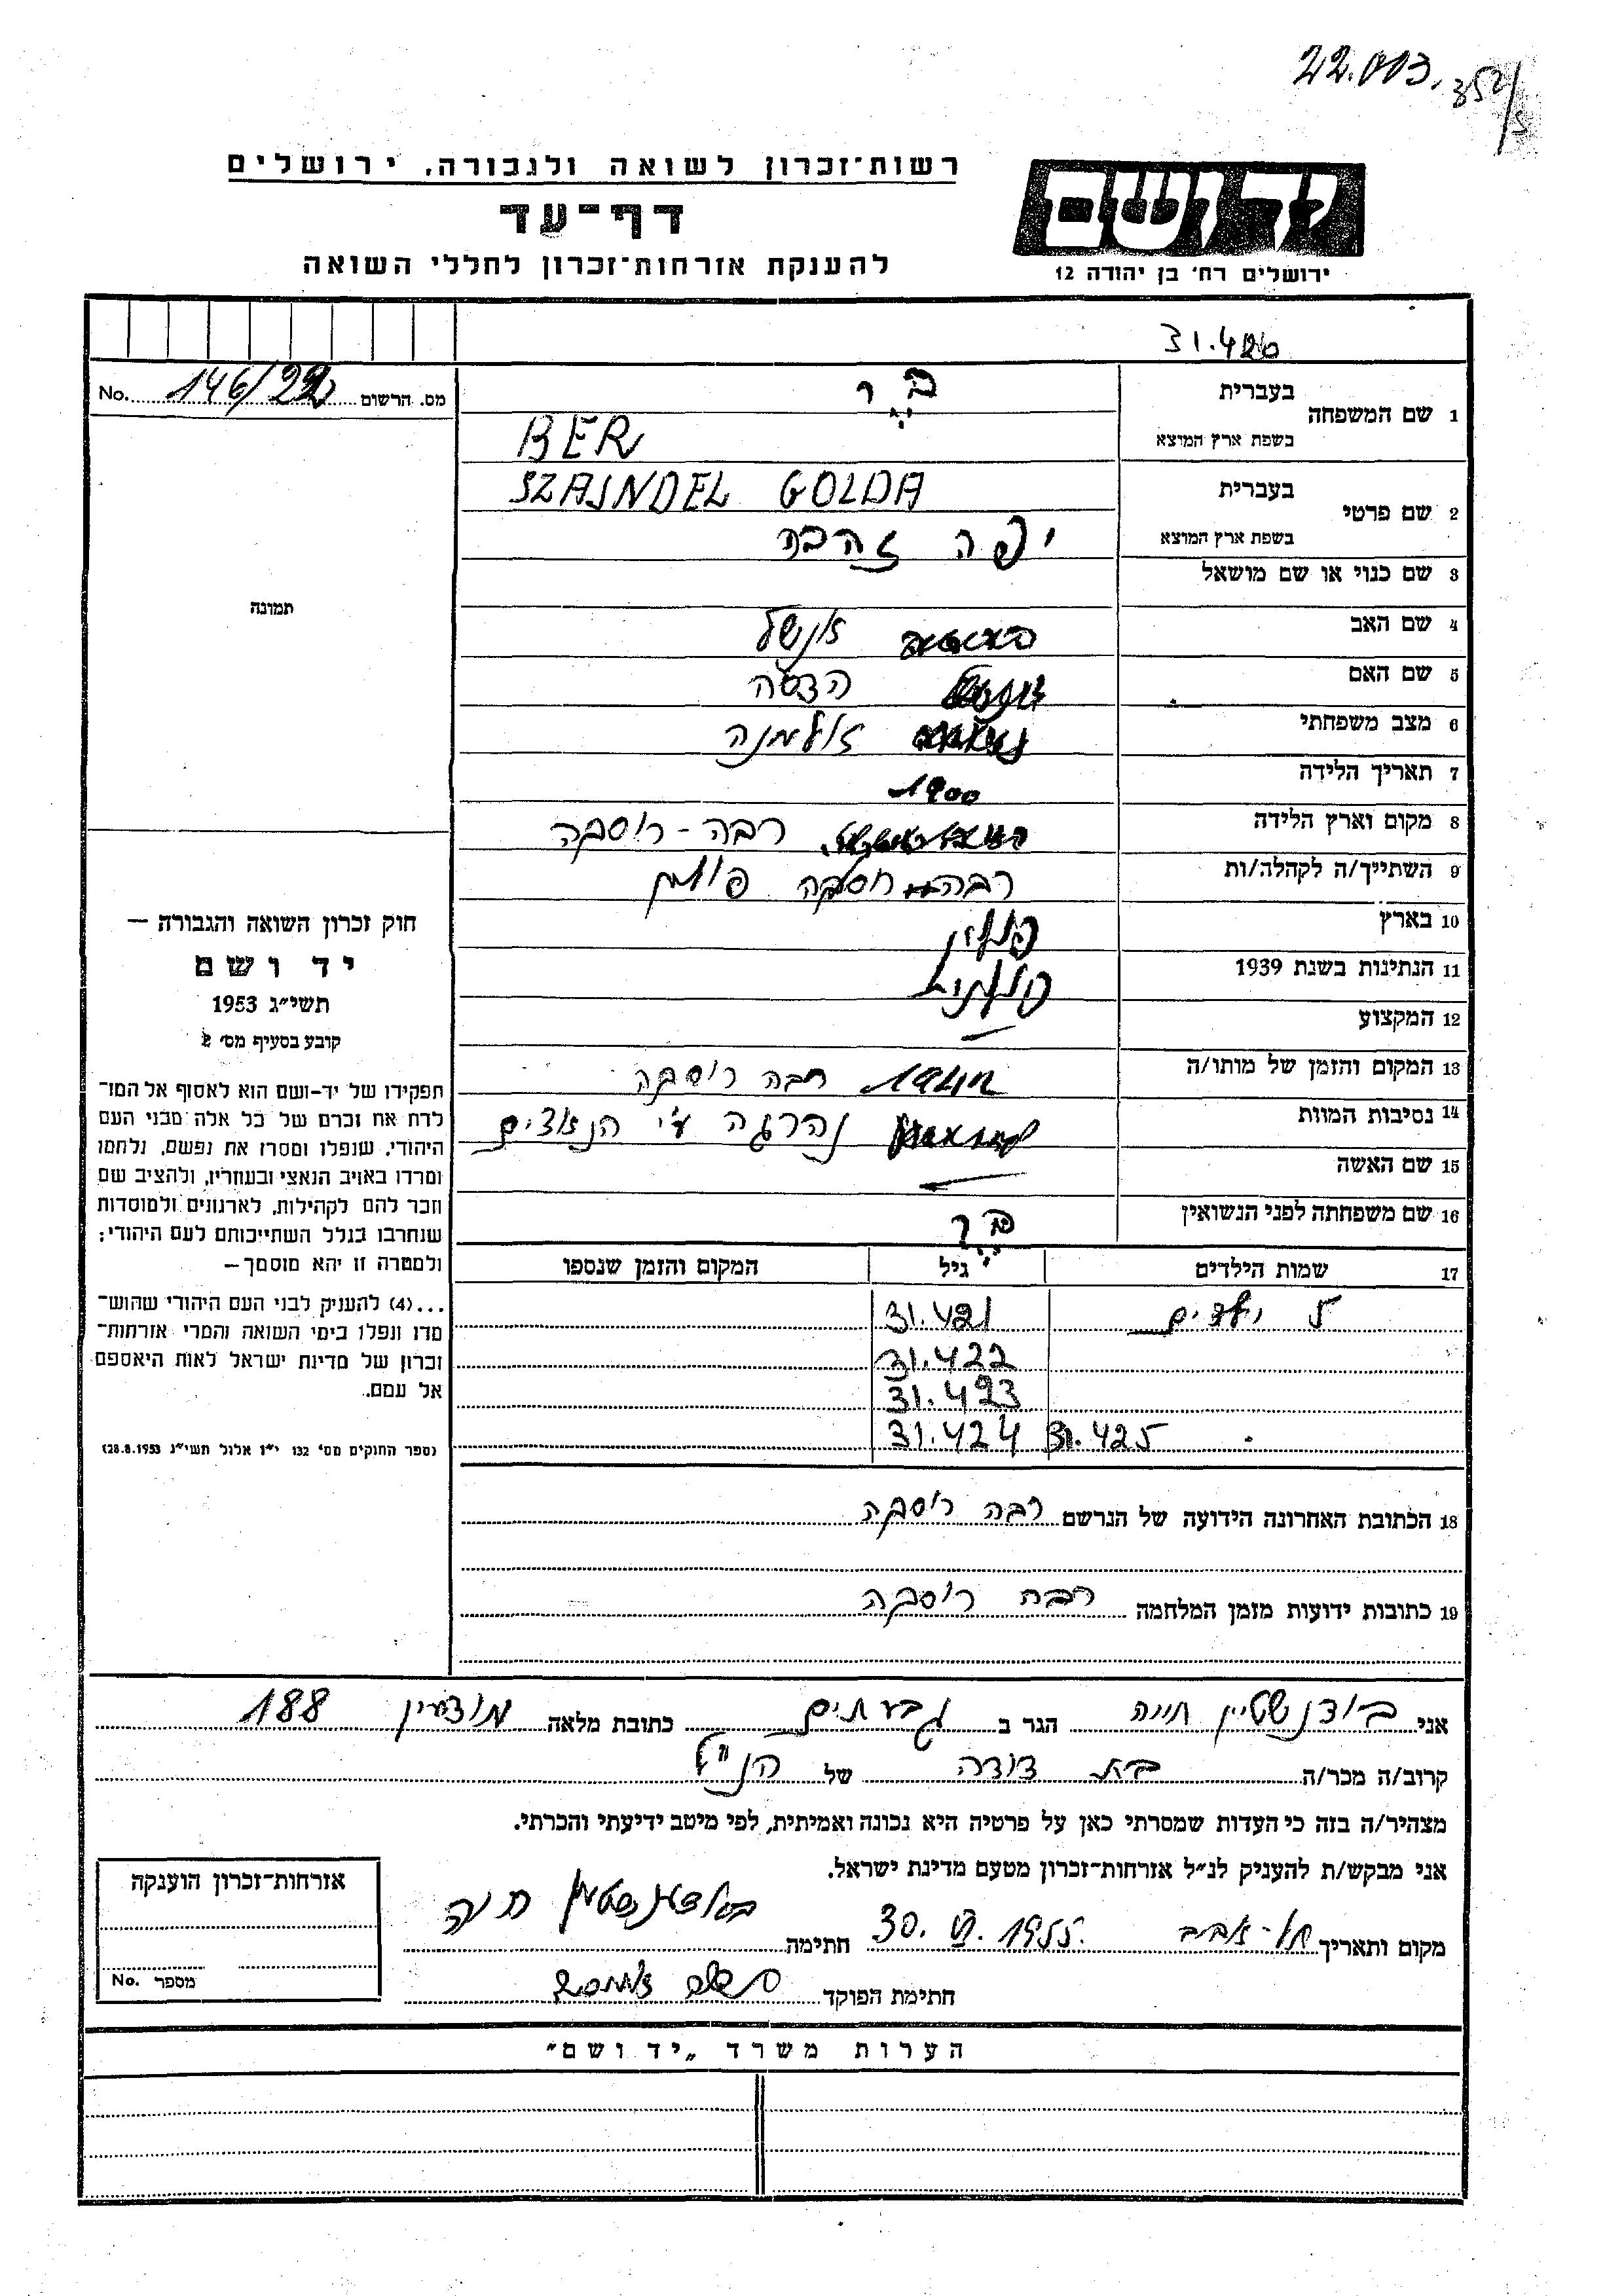 22.003. 352/5
רשות־זכרון לשואה ולגבורה, ירושלים
דף־עד
להענקת אזרחות־זכרון לחללי השואה
יד ושם
ירושלים רח׳ בן יהודה 12
31.420
מס. הרשום No. 146/22
1 שם המשפחה בעברית בר
בשפת ארץ המוצא BER
2 שם פרטי בעברית SZAJNDEL GOLDA
בשפת ארץ המוצא יפה זהבה
3 שם כנוי או שם מושאל
4 שם האב אנשל
5 שם האם הדסה
6 מצב משפחתי אלמנה
7 תאריך הלידה 1900
8 מקום וארץ הלידה רבה-רוסקה
9 השתייך/ה לקהלה/ות רבה רוסקה פולין
10 בארץ פולין
11 הנתינות בשנת 1939 פולנית
12 המקצוע
13 המקום והזמן של מותו/ה רבה רוסקה
14 נסיבות המוות נהרגה ע״י הנאצים
15 שם האשה
16 שם משפחתה לפני הנשואין בר
תמונה
חוק זכרון השואה והגבורה –
יד ושם
תשי״ג 1953
קובע בסעיף מס׳ 2
תפקידו של יד-ושם הוא לאסוף אל המו־
לדת את זכרם של כל אלה מבני העם
היהודי, שנפלו ומסרו את נפשם, נלחמו
ומרדו באויב הנאצי ובעוזריו, ולהציב שם
וזכר להם לקהילות, לארגונים ולמוסדות
שנחרבו בגלל השתייכותם לעם היהודי;
ולמטרה זו יהא מוסמך –
...(4) להעניק לבני העם היהודי שהוש־
מדו ונפלו בימי השואה והמרי אזרחות־
זכרון של מדינת ישראל לאות היאספם
אל עמם.
(ספר החוקים מס׳ 132 י״ז אלול תשי״ג 28.8.1953)
17 שמות הילדים גיל המקום והזמן שנספו
5 ילדים 31.421
31.422
31.423
31.425 31.424
18 הכתובת האחרונה הידועה של הנרשם רבה רוסקה
19 כתובות ידועות מזמן המלחמה רבה רוסקה
אני בודנשטיין חיה הגר ב גבעתיים כתובת מלאה מודיעין 188
קרוב/ה מכר/ה בת דודה של הנ״ל
מצהיר/ה בזה כי העדות שמסרתי כאן על פרטיה היא נכונה ואמיתית, לפי מיטב ידיעתי והכרתי.
אני מבקש/ת להעניק לנ״ל אזרחות־זכרון מטעם מדינת ישראל.
מקום ותאריך תל-אביב 30. VI. 1955. חתימה חיה
חתימת הפוקד
אזרחות־זכרון הוענקה
מספר No.
הערות משרד „יד ושם״